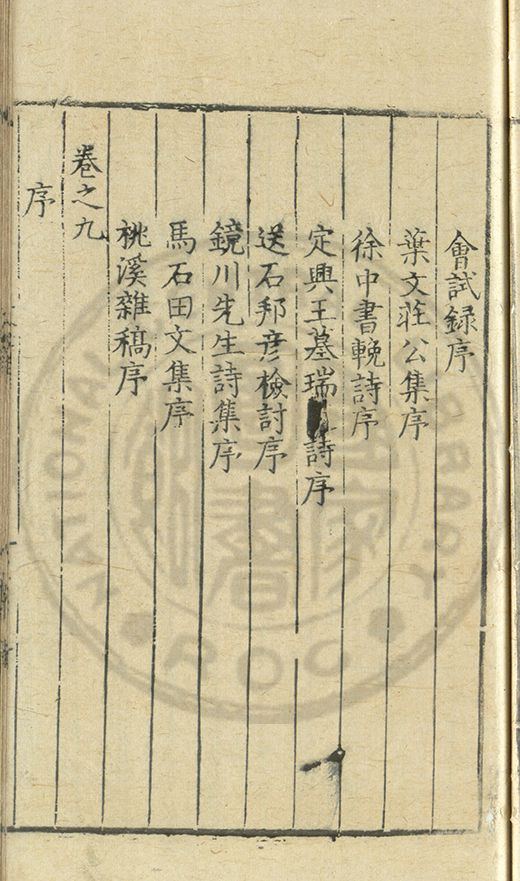 會試録序
葉文莊公集序
徐中書輓詩序
定興王墓瑞詩序
送石邦彦檢討序
鏡川先生詩集序
馬石田文集序
桃溪雜稿序
卷之九
序